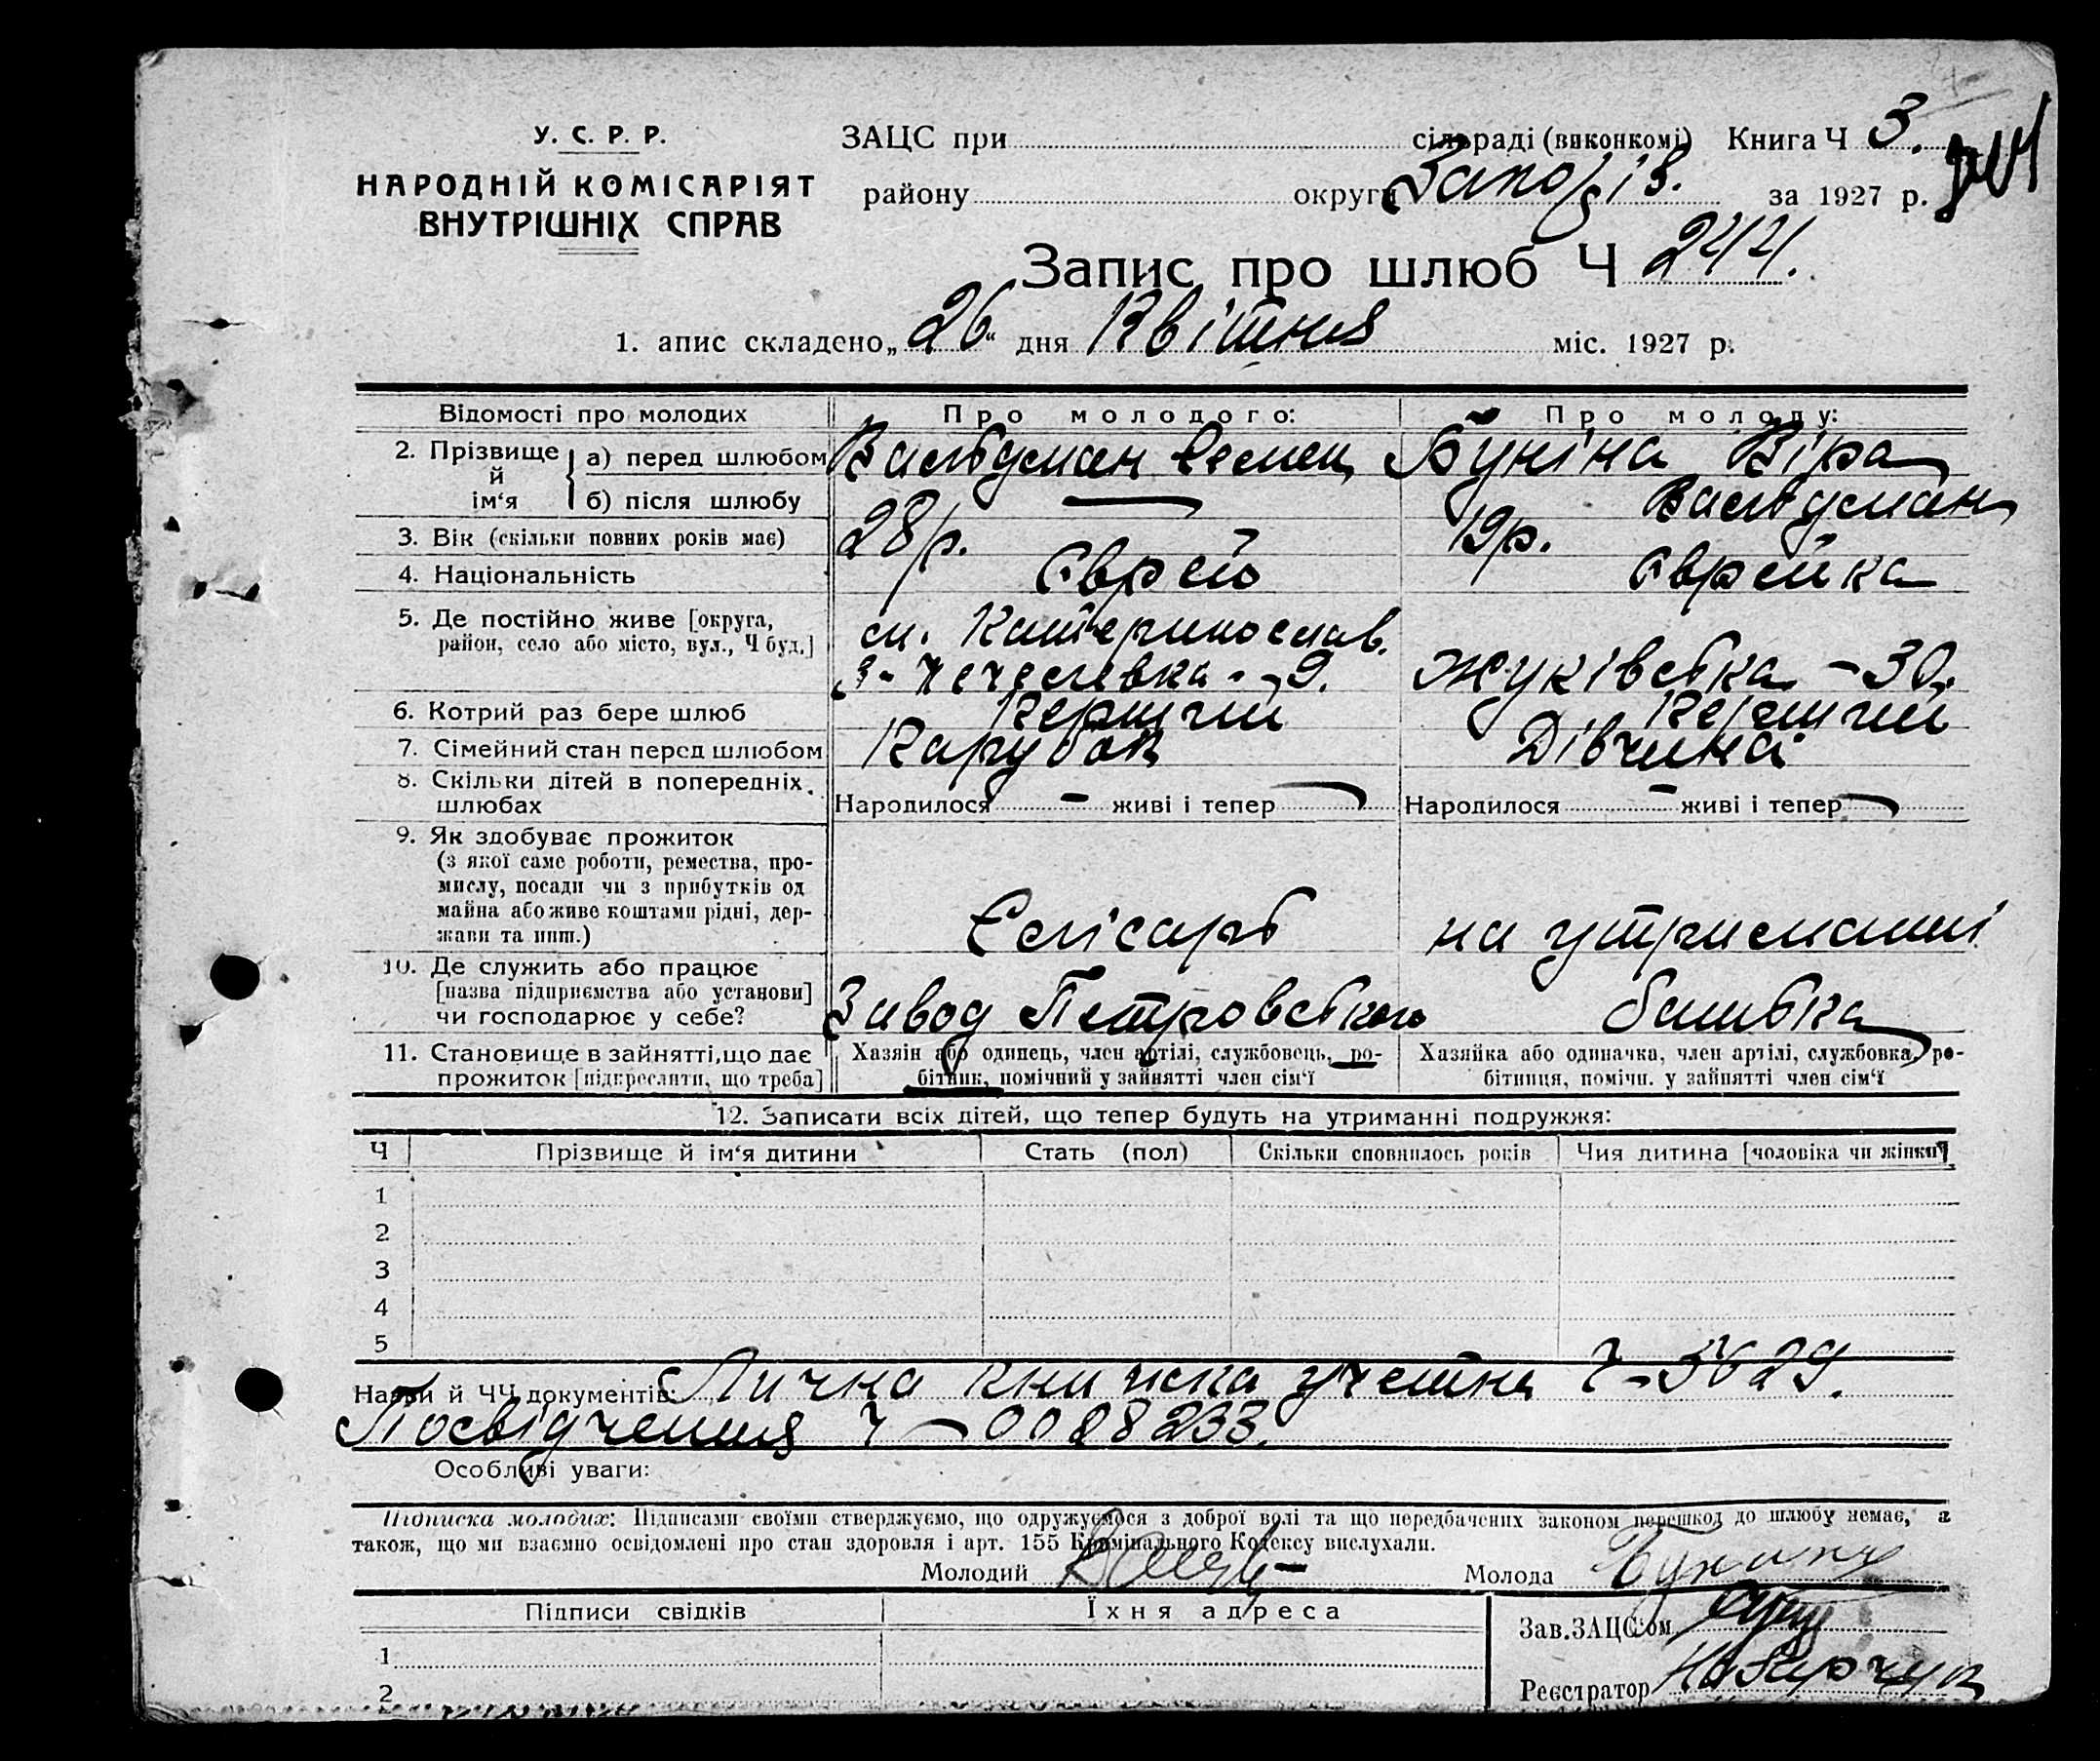 У. С. Р. Р.
НАРОДНІЙ КОМІСАРІЯТ
ВНУТРІШНІХ СПРАВ
ЗАЦС при сільраді (виконкомі) Книга Ч 3.
району округи Запоріз. за 1927 р.
Запис про шлюб Ч 244.
1. апис складено „26“ дня Квітня міс. 1927 р.
Відомості про молодих Про молодого: Про молоду:
2. Прізвище й ім‘я а) перед шлюбом Вальдман Буніна Віра
б) після шлюбу — Вальдман
3. Вік (скільки повних років має) 28 р. 19 р.
4. Національність Єврей Єврейка
5. Де постійно живе [округа, район, село або місто, вул., Ч буд.] м. Катеринослав.
3-Чечелевка - 9. Жуківська - 30.
6. Котрий раз бере шлюб Перший Перший
7. Сімейний стан перед шлюбом Парубок Дівчина
8. Скільки дітей в попередніх шлюбах Народилося — живі і тепер — Народилося — живі і тепер —
9. Як здобуває прожиток
(з якої саме роботи, ремества, про-
мислу, посади чи з прибутків од
майна або живе коштами рідні, дер-
жави та инш.) Слісарь на утриманні
10. Де служить або працює
[назва підприємства або установи]
чи господарює у себе? Завод Петровського батька
11. Становище в зайнятті, що дає
прожиток [підкреслити, що треба]
Хазяін або одинець, член артілі, службовець, ро-
бітник, помічний у зайнятті член сім‘ї
Хазяйка або одиначка, член артілі, службовка, ро-
бітниця, помічн. у зайнятті член сім‘ї
12. Записати всіх дітей, що тепер будуть на утриманні подружжя:
Ч Прізвище й ім‘я дитини Стать (пол) Скільки сповнилось років Чия дитина [чоловіка чи жінки]
1
2
3
4
5
Назви й ЧЧ документів: Лична книжка Ч-3629.
Посвідчення Ч-0088233.
Особливі уваги:
Підписка молодих: Підписами своїми стверджуємо, що одружуємося з доброї волі та що передбачених законом перешкод до шлюбу немає, а
також, що ми взаємно освідомлені про стан здоровля і арт. 155 Кримінального Кодексу вислухали.
Молодий Молода Бунина
Підписи свідків Їхня адреса
Зав. ЗАЦС‘ом
1
Реєстратор
2